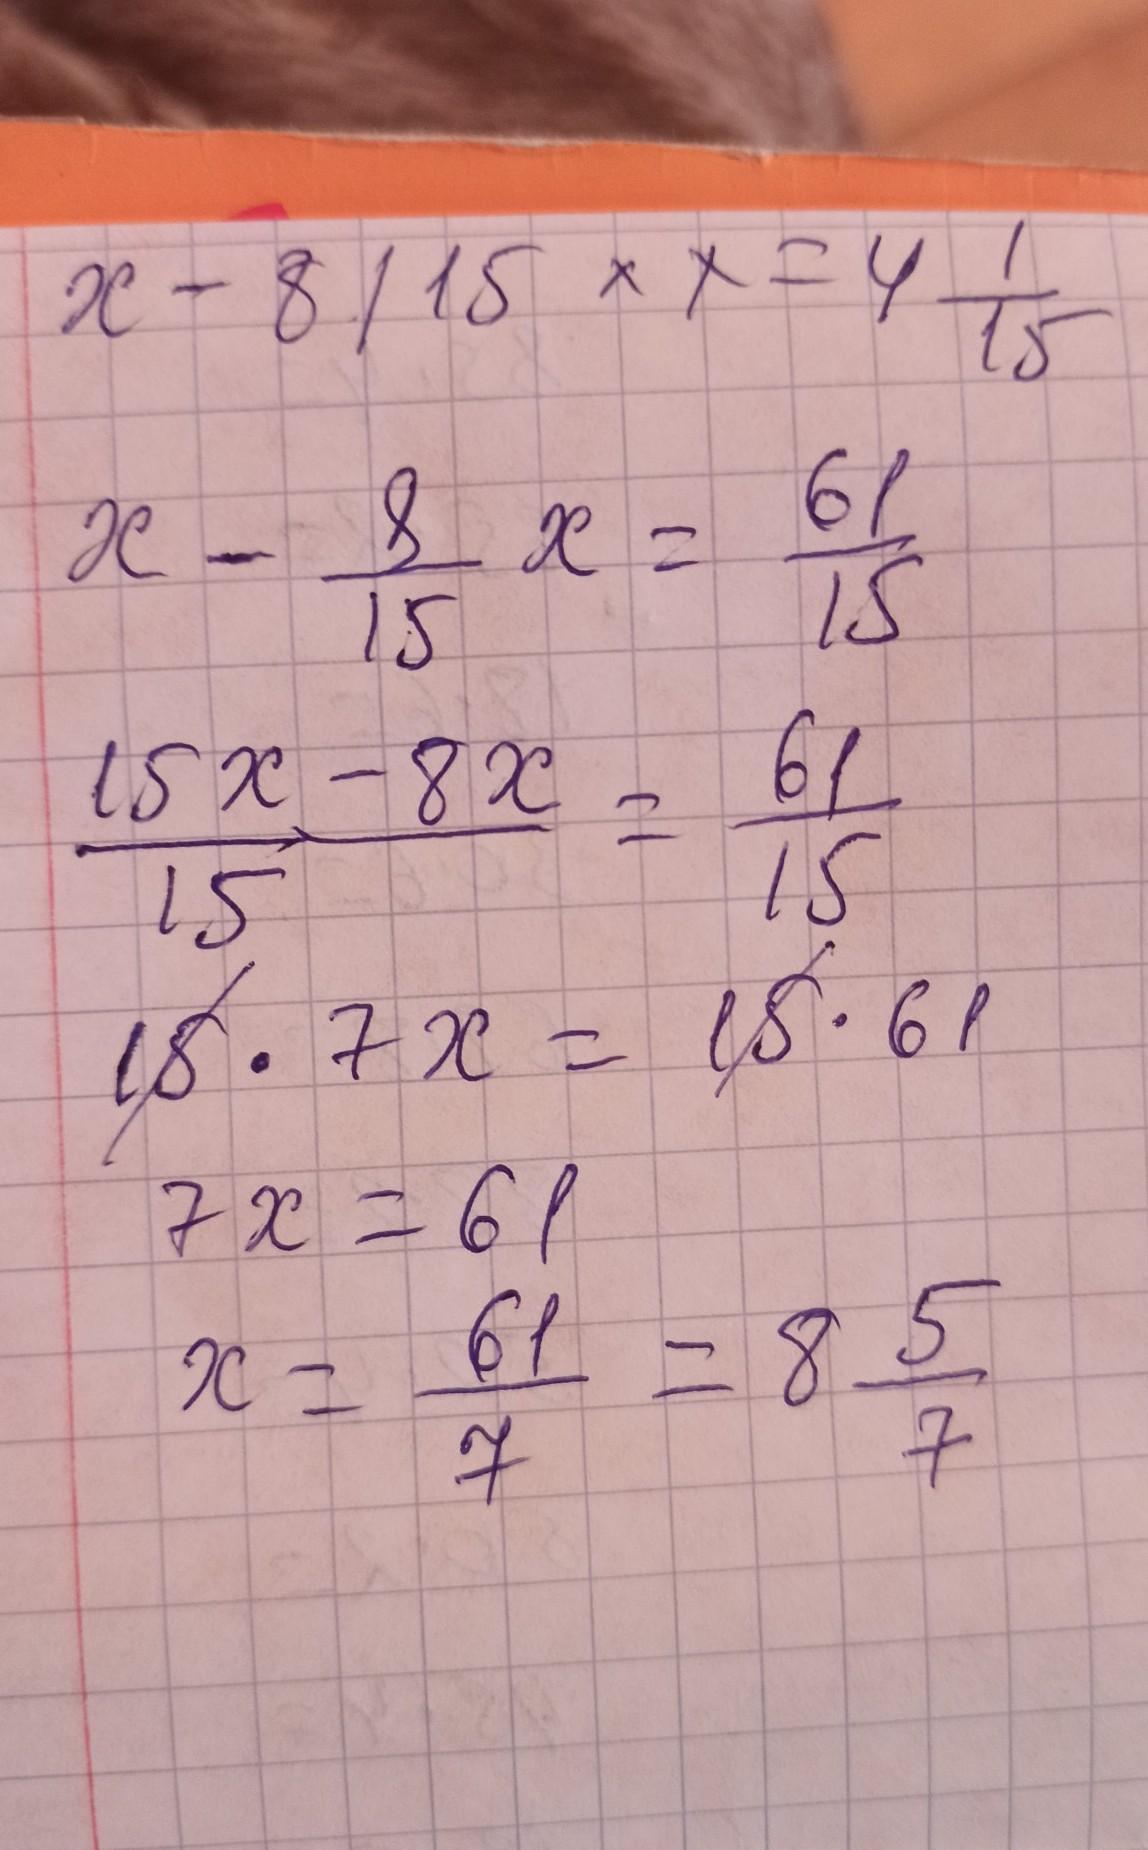 x - 8/15 × x = 4 1/15
x - 8/15 x = 61/15
15x - 8x / 15 = 61/15
15 · 7x = 15 · 61
7x = 61
x = 61/7 = 8 5/7